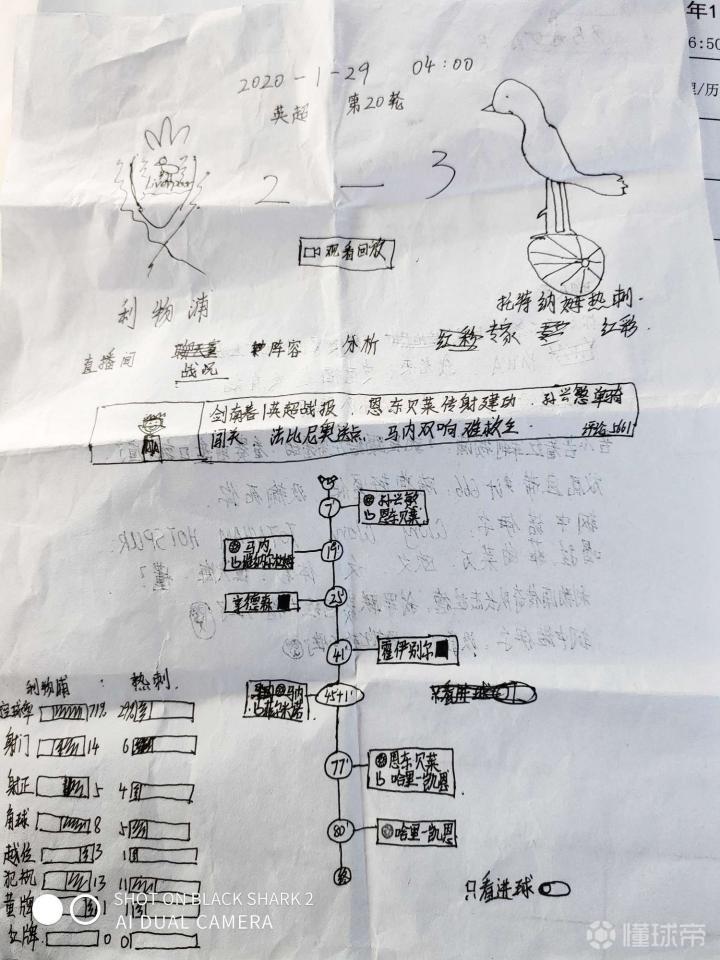 年1
6:50
2020-1-29 04:00
英超 第20轮
Liverpool
2 — 3
观看回放
利物浦
托特纳姆热刺
直播间 聊天室 战况 阵容 分析 红彩专家 红彩
剑南春|英超战报 恩东贝莱传射建功 孙兴慜单骑
闯关 法比尼奥送点 马内双响难救主 评论5661
7'
孙兴慜
恩东贝莱
19'
马内
25'
亨德森
41'
霍伊别尔
45+1'
马内
菲尔米诺
只看进球
77'
恩东贝莱
哈里-凯恩
80'
哈里-凯恩
终
只看进球
利物浦 : 热刺
控球率 71% 29%
射门 14 6
射正 5 4
角球 8 5
越位 3 1
犯规 13 11
黄牌 1 1
红牌 0 0
SHOT ON BLACK SHARK 2
AI DUAL CAMERA
懂球帝